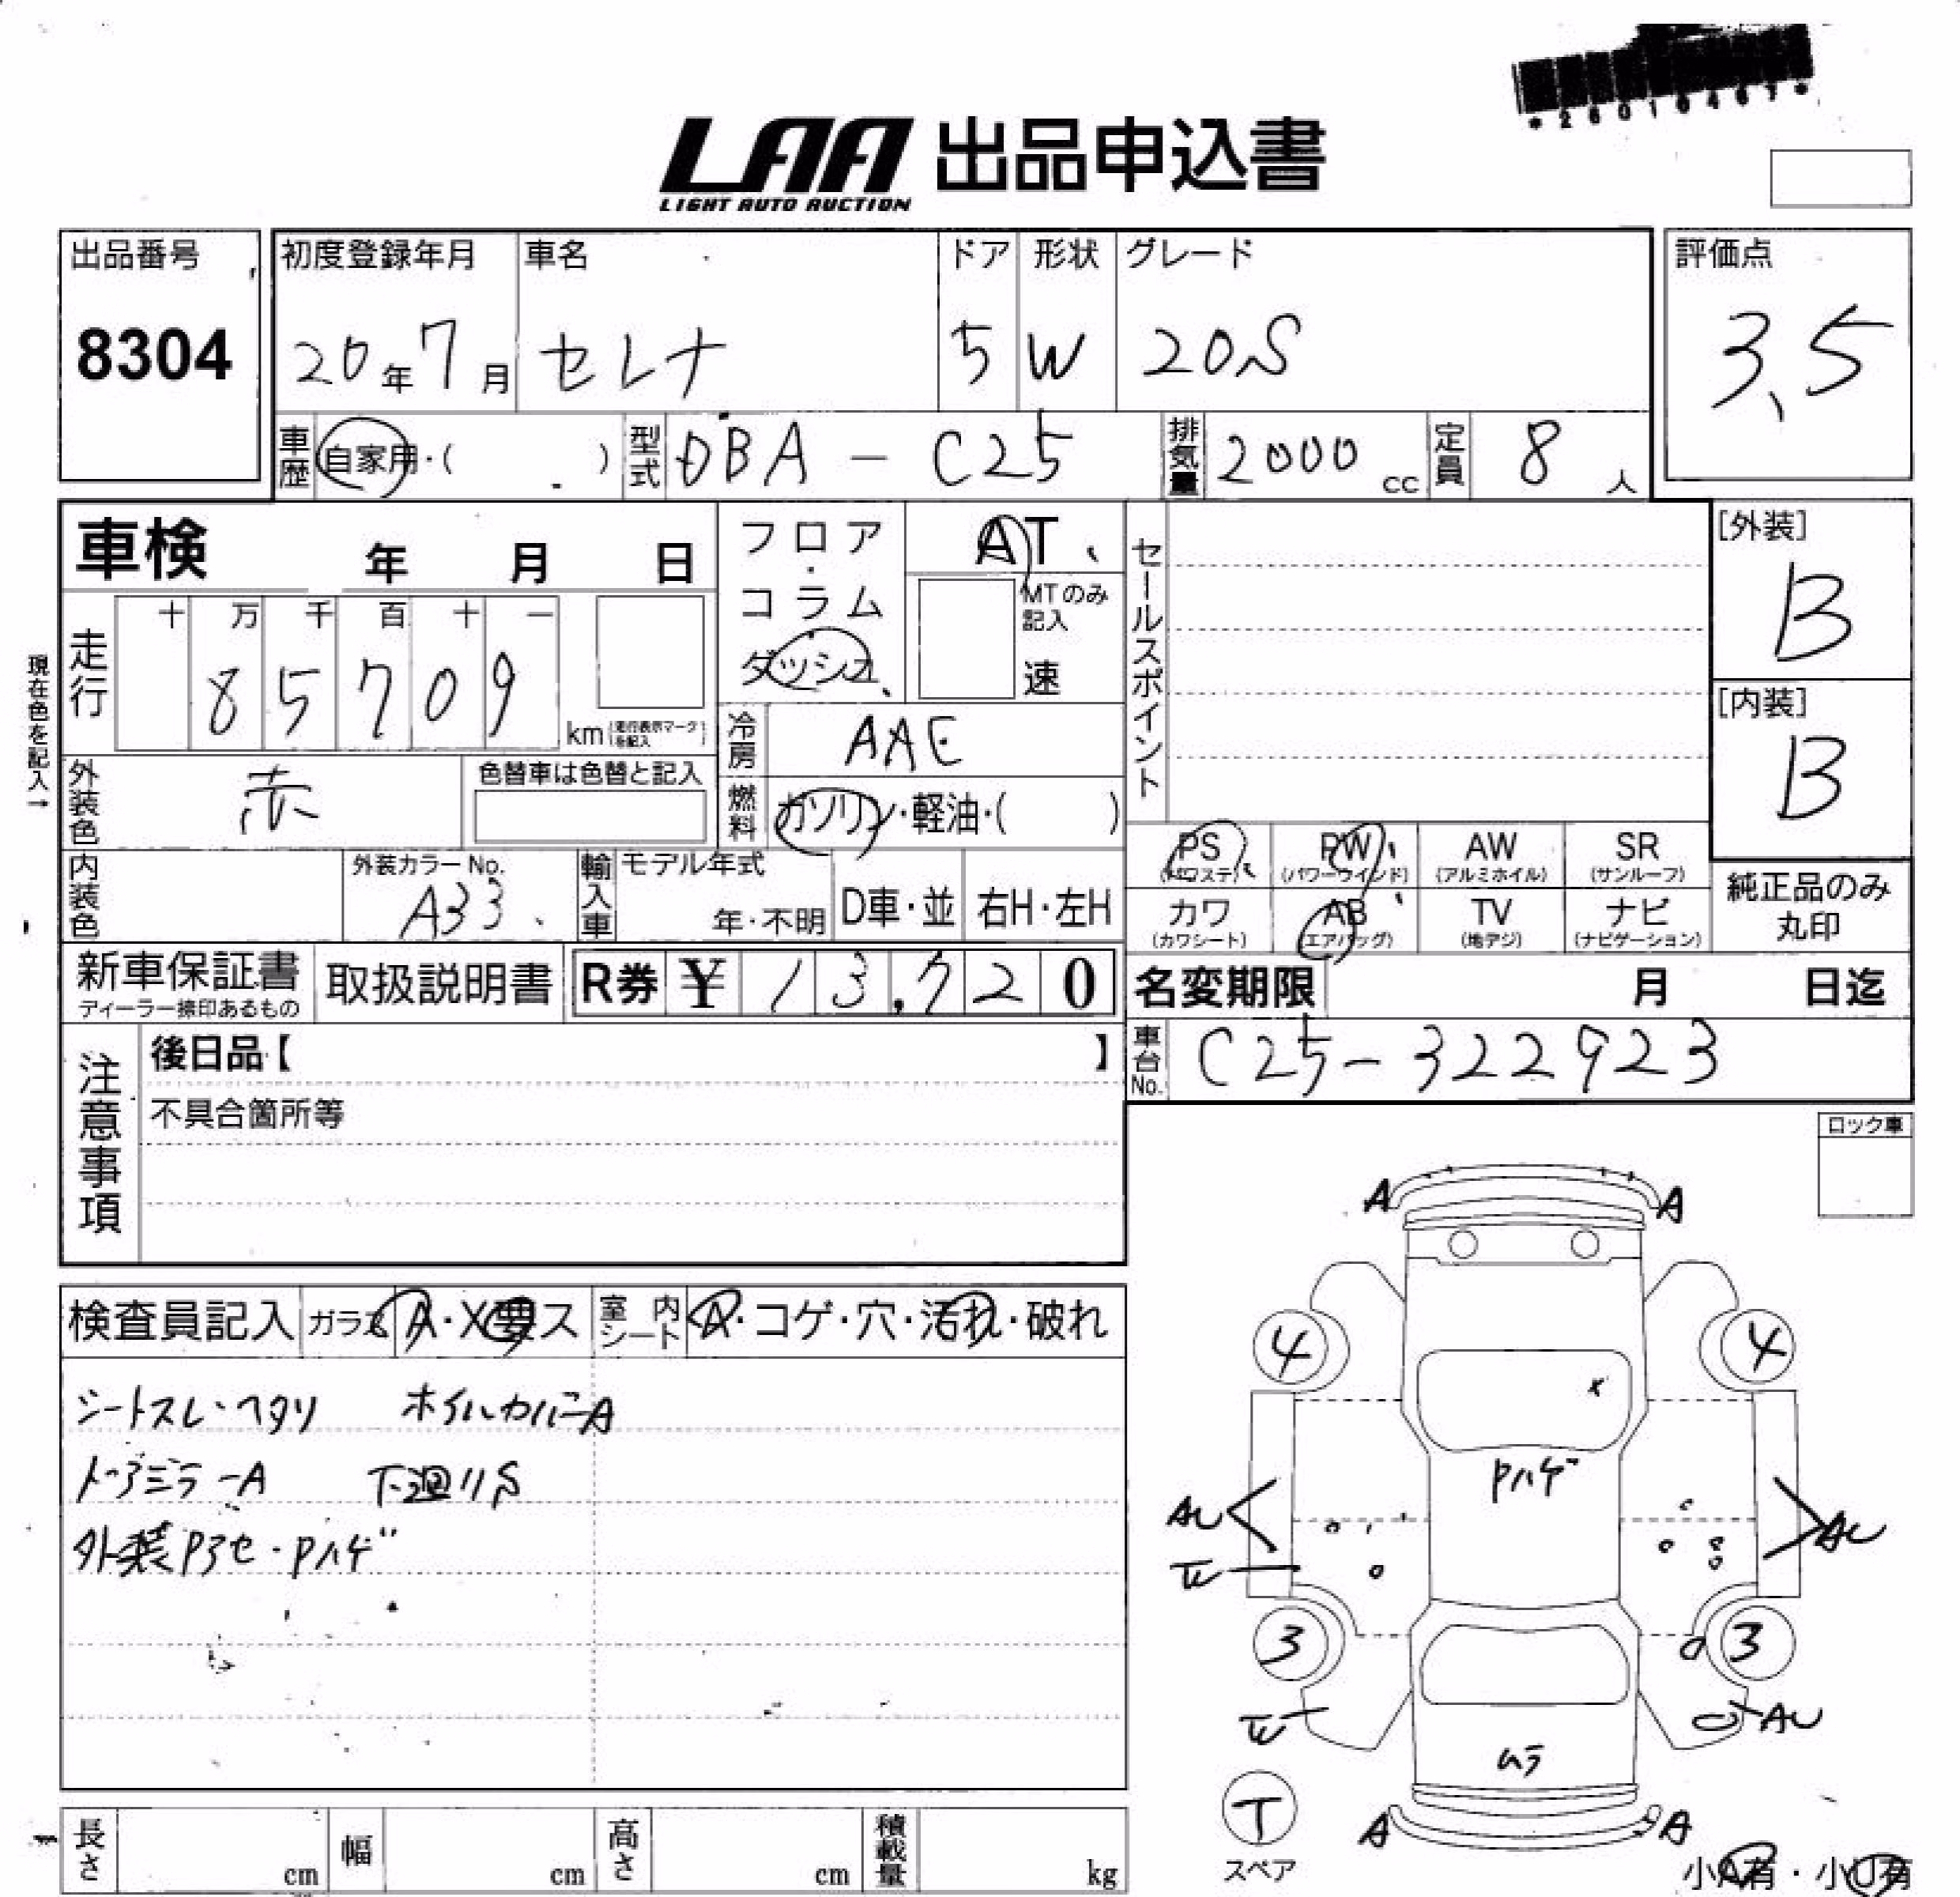 *26010461*
LAA 出品申込書
LIGHT AUTO AUCTION
出品番号
8304
初度登録年月
20年7月
車名
セレナ
ドア
5
形状
W
グレード
20S
評価点
3.5
車歴
自家用・( )
型式
DBA - C25
排気量
2000 cc
定員
8 人
車検 年 月 日
フロア・コラム
ダッシュ
AT
MTのみ記入
速
セールスポイント
[外装]
B
[内装]
B
現在色を記入→
走行
十 万 千 百 十 一
8 5 7 0 9
km (走行表示マークを記入)
冷房
AAE
外装色
赤
色替車は色替と記入
燃料
ガソリン・軽油・( )
PS
(パワステ)
PW
(パワーウインド)
AW
(アルミホイル)
SR
(サンルーフ)
カワ
(カワシート)
AB
(エアバッグ)
TV
(地デジ)
ナビ
(ナビゲーション)
純正品のみ
丸印
内装色
外装カラーNo.
A33
輸入車
モデル年式
年・不明
D車・並
右H・左H
新車保証書
ディーラー捺印あるもの
取扱説明書
R券 ¥ 13,720
名変期限 月 日迄
車台No.
C25-322923
注意事項
後日品【 】
不具合箇所等
ロック車
検査員記入
ガラス A・X要ス
室内シート
A・コゲ・穴・汚れ・破れ
シートスレ・ヘタリ ホイルカバーA
ドアミラーA 下廻りS
外装Pアセ・Pハゲ
A A
4 4
X
Pハゲ
AU AU
3 3
AU
ムラ
T
スペア
A A
小A有・小U有
長さ cm
幅 cm
高さ cm
積載量 kg